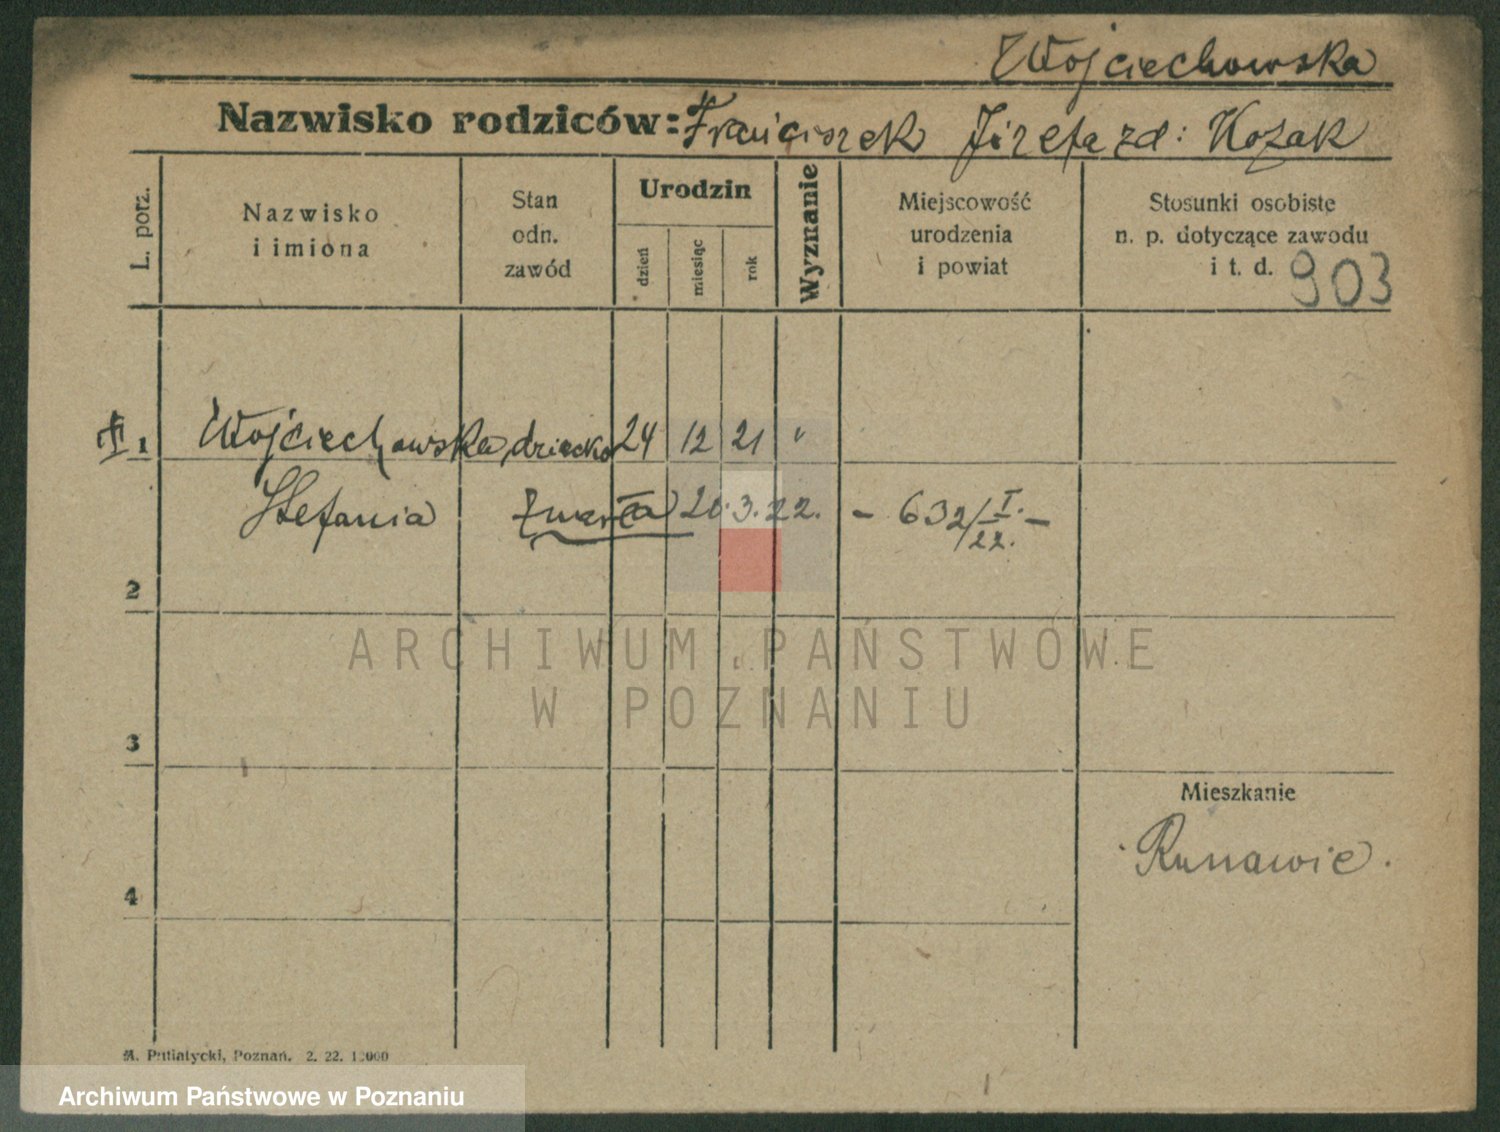 Wojciechowska
Nazwisko rodziców: Franciszek Józefa zd: Kozak
L. porz.
Nazwisko
i imiona
Stan
odn.
zawód
Urodzin
dzień
miesiąc
rok
Wyznanie
Miejscowość
urodzenia
i powiat
Stosunki osobiste
n. p. dotyczące zawodu
i t. d. 903
1 Wojciechowska, dziecko 24 12 21 "
Stefania zmarła 20.3.22. - 632/I.22. -
2
3
4
Mieszkanie
Runawie.
ARCHIWUM PAŃSTWOWE
W POZNANIU
A. Putiatycki, Poznań. 2. 22. 10000
Archiwum Państwowe w Poznaniu